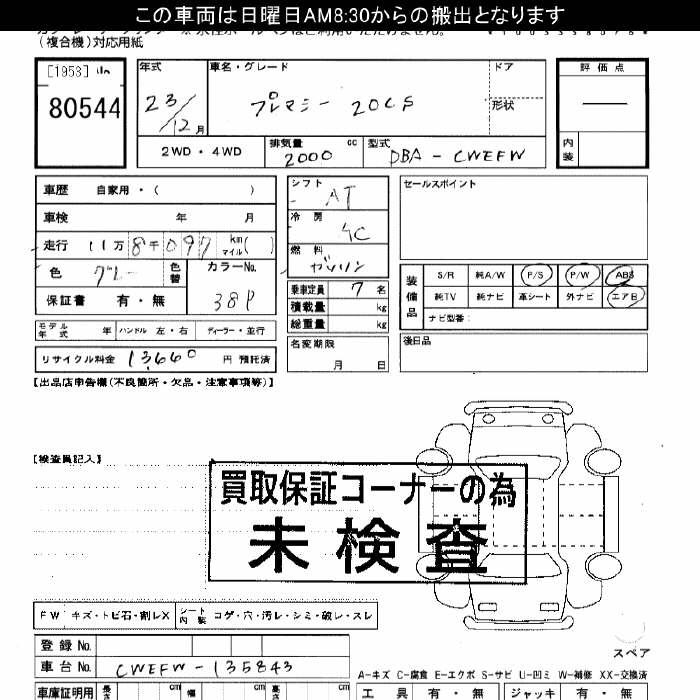 この車両は日曜日AM8:30からの搬出となります
(複合機)対応用紙
[1953] 山
80544
年式 23/12月
車名・グレード プレマシー 20CS
ドア
形状
評価点
内装
2WD・4WD
排気量 2000 cc
型式 DBA-CWEFW
車歴 自家用・( )
車検 年 月
走行 11万8千097 km マイル( )
色 グレー 色替 カラーNo. 38P
保証書 有・無
シフト AT
冷房 AC
燃料 ガソリン
乗車定員 7名
積載量 kg
総重量 kg
名変期限 月 日
セールスポイント
装備品 S/R 純A/W P/S P/W ABS
純TV 純ナビ 革シート 外ナビ エアB
ナビ型番:
後日品
モデル年式 年 ハンドル 左・右 ディーラー・並行
リサイクル料金 13,660 円 預託済
【出品店申告欄(不良箇所・欠品・注意事項等)】
【検査員記入】
買取保証コーナーの為
未検査
FW キズ・トビ石・割レX シート内装 コゲ・穴・汚レ・シミ・破レ・スレ
登録No.
車台No. CWEFW-135843
車庫証明用 長さ cm 幅 cm 高さ cm
スペア
A-キズ C-腐食 E-エクボ S-サビ U-凹ミ W-補修 XX-交換済
工具 有・無 ジャッキ 有・無